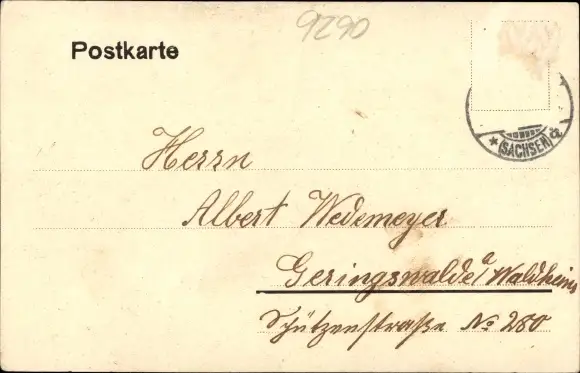 9290
Postkarte
* (SACHSEN)
Herrn
Albert Wedemeyer
Geringswalde a/ Waldheim
Schützenstraße No 280